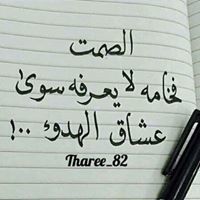 الصمت
فخامه لا يعرفه سوى
عشاق الهدوء ..!
Tharee_82